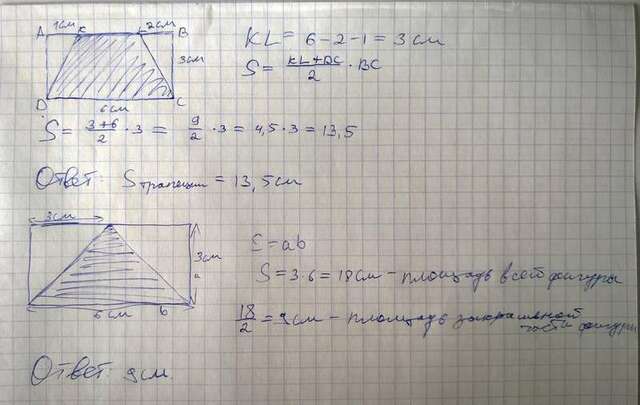 1см 2см
A K L B
3см
D C
6см
KL = 6-2-1 = 3 см
S = (KL+DC)/2 · BC
S = (3+6)/2 · 3 = 9/2 · 3 = 4,5·3 = 13,5
Ответ: S трапеции = 13,5см
3см
3см
a
6 см b
S = ab
S = 3·6 = 18см - площадь всей фигуры
18/2 = 9см - площадь закрашеной
части фигуры
Ответ: 9см.